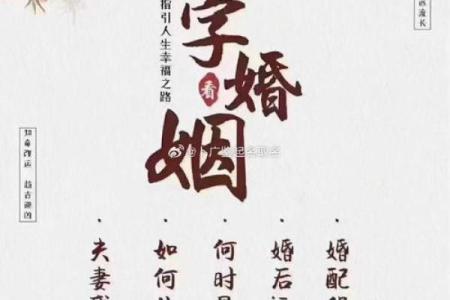 字
看
婚
姻
指引人生幸福之路
知命改运 趋吉避凶
源流长
婚配
婚后
何时
如何
夫妻